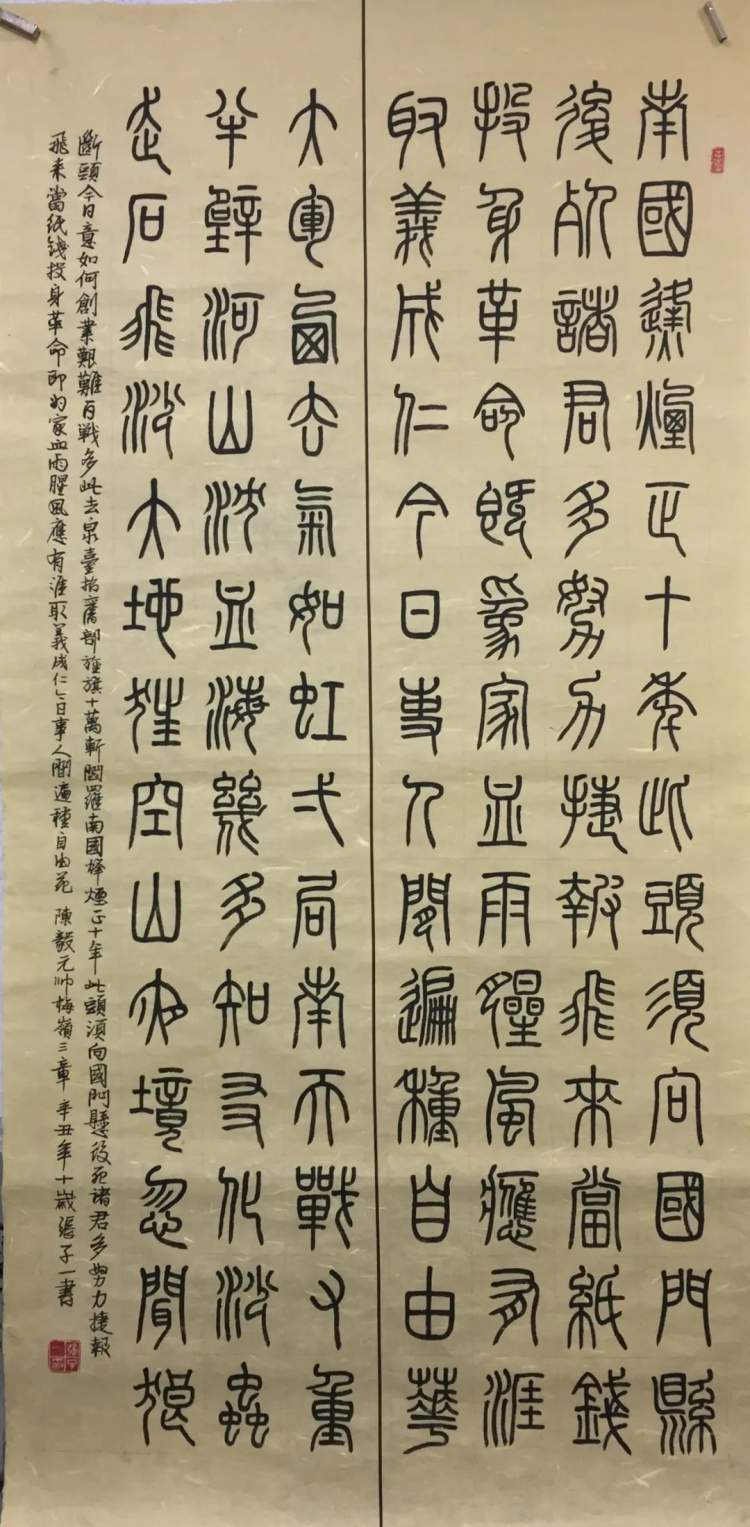 南國逢煙正十年此頭須向國門縣
後死諸君多努力捷報飛來當紙錢
投身革命既爲家血雨腥風應有涯
取義成仁今日事人間遍種自由華
大軍西去氣如虹弌局南天戰又重
半壁河山沈血海幾多知友化沙蟲
走石飛沙大地狂空山夜境忽聞狼
斷頭今日意如何創業艱難百戰多此去泉臺招舊部旌旗十萬斬閻羅南國烽煙正十年此頭須向國門懸後死諸君多努力捷報
飛來當紙錢投身革命即為家血雨腥風應有涯取義成仁今日事人間遍種自由花 陳毅元帥梅嶺三章 辛丑年十歲張子一書